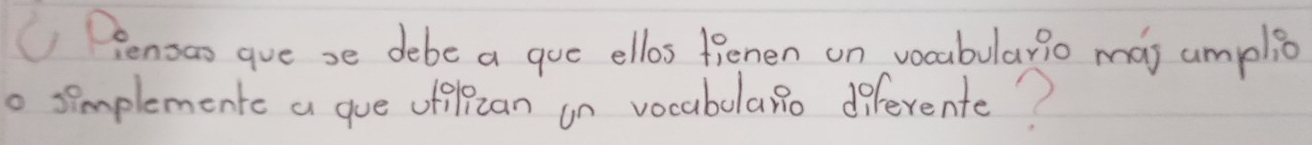 ¿Piensas que se debe a que ellos tienen un vocabulario más amplio
o simplemente a que utilizan un vocabulario diferente?